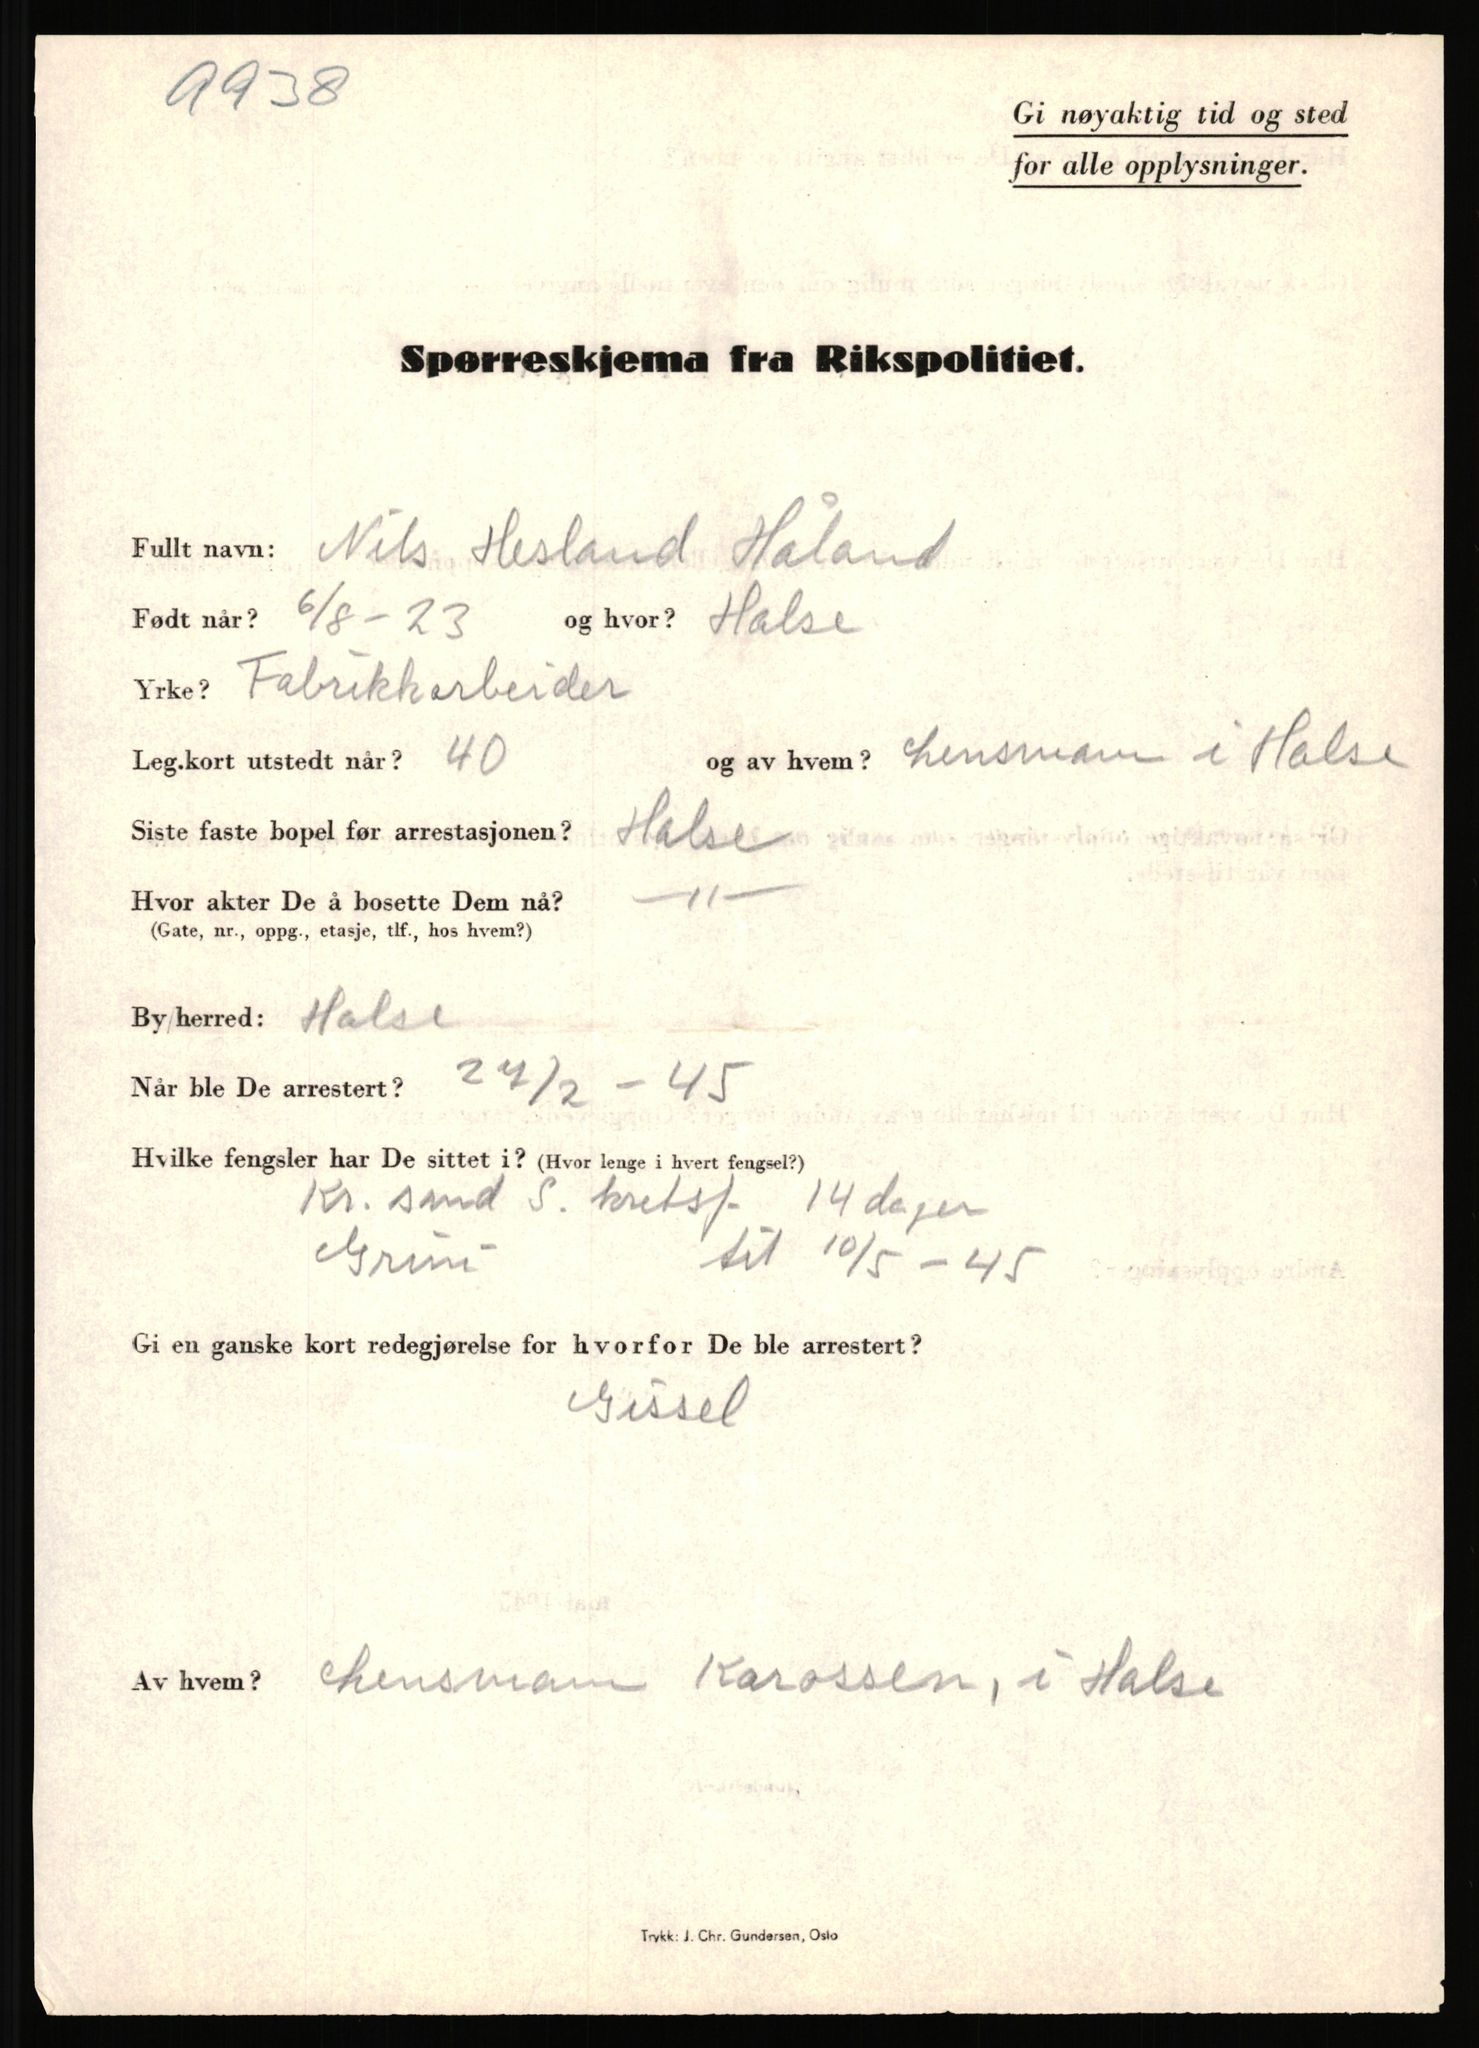 9938
Gi nøyaktig tid og sted
for alle opplysninger.
Spørreskjema fra Rikspolitiet.
Fullt navn: Nils Hesland Håland
Født når? 6/8 - 23 og hvor? Halse
Yrke? Fabrikkarbeider
Leg.kort utstedt når? 40 og av hvem? Lensmann i Halse
Siste faste bopel før arrestasjonen? Halse
Hvor akter De å bosette Dem nå? —"—
(Gate, nr., oppg., etasje, tlf., hos hvem?)
By/herred: Halse
Når ble De arrestert? 27/2 - 45
Hvilke fengsler har De sittet i? (Hvor lenge i hvert fengsel?)
Kr. sand S. kretsf. 14 dager
Grini til 10/5 - 45
Gi en ganske kort redegjørelse for hvorfor De ble arrestert?
Gissel
Av hvem? Lensmann Karossen, i Halse
Trykk: J. Chr. Gundersen, Oslo